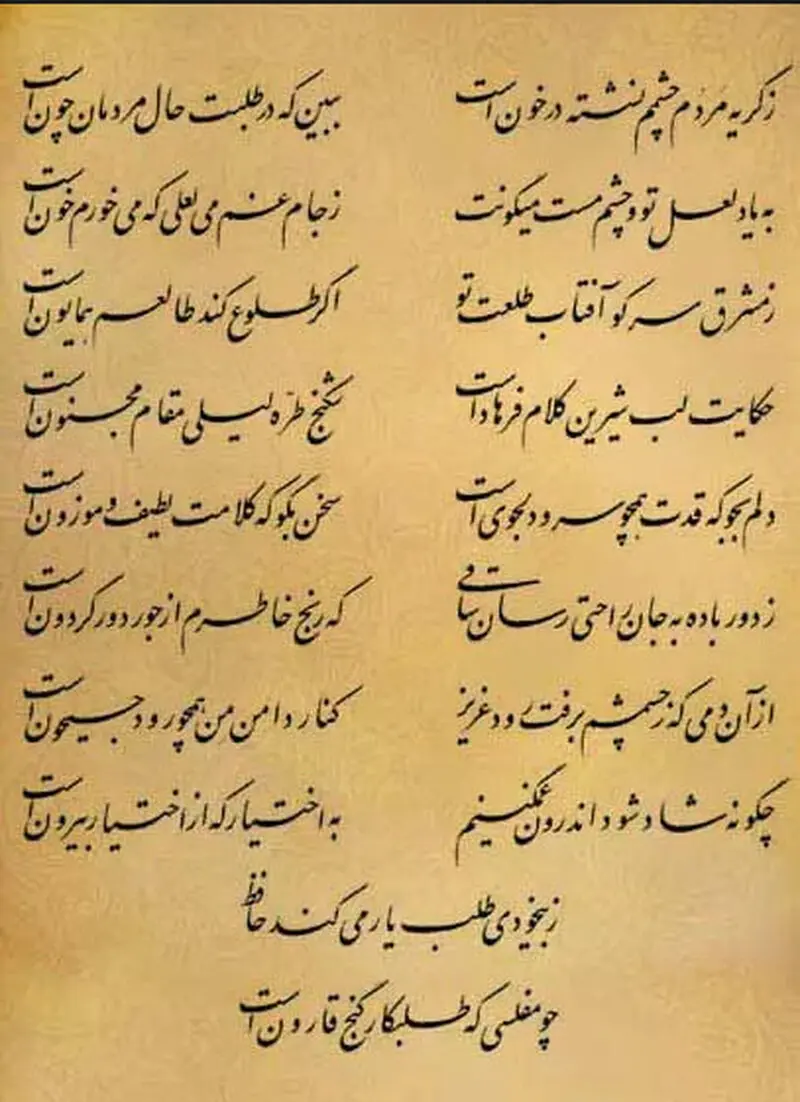 ز گریه مردم چشمم نشسته در خون است
ببین که در طلبت حال مردمان چون است
به یاد لعل تو و چشم مست میگونت
ز جام غم می لعلی که می خورم خون است
ز مشرق سر کو آفتاب طلعت تو
اگر طلوع کند طالعم همایون است
حکایت لب شیرین کلام فرهاد است
شکنج طرّه لیلی مقام مجنون است
دلم بجو که قدت همچو سرو دلجوی است
سخن بگو که کلامت لطیف و موزون است
ز دور باده به جان راحتی رسان ساقی
که رنج خاطرم از جور دور گردون است
از آن دمی که ز چشمم برفت رود عزیز
کنار دامن من همچو رود جیحون است
چگونه شاد شود اندرون غمگینم
به اختیار که از اختیار بیرون است
ز بیخودی طلب یار می کند حافظ
چو مفلسی که طلبکار گنج قارون است